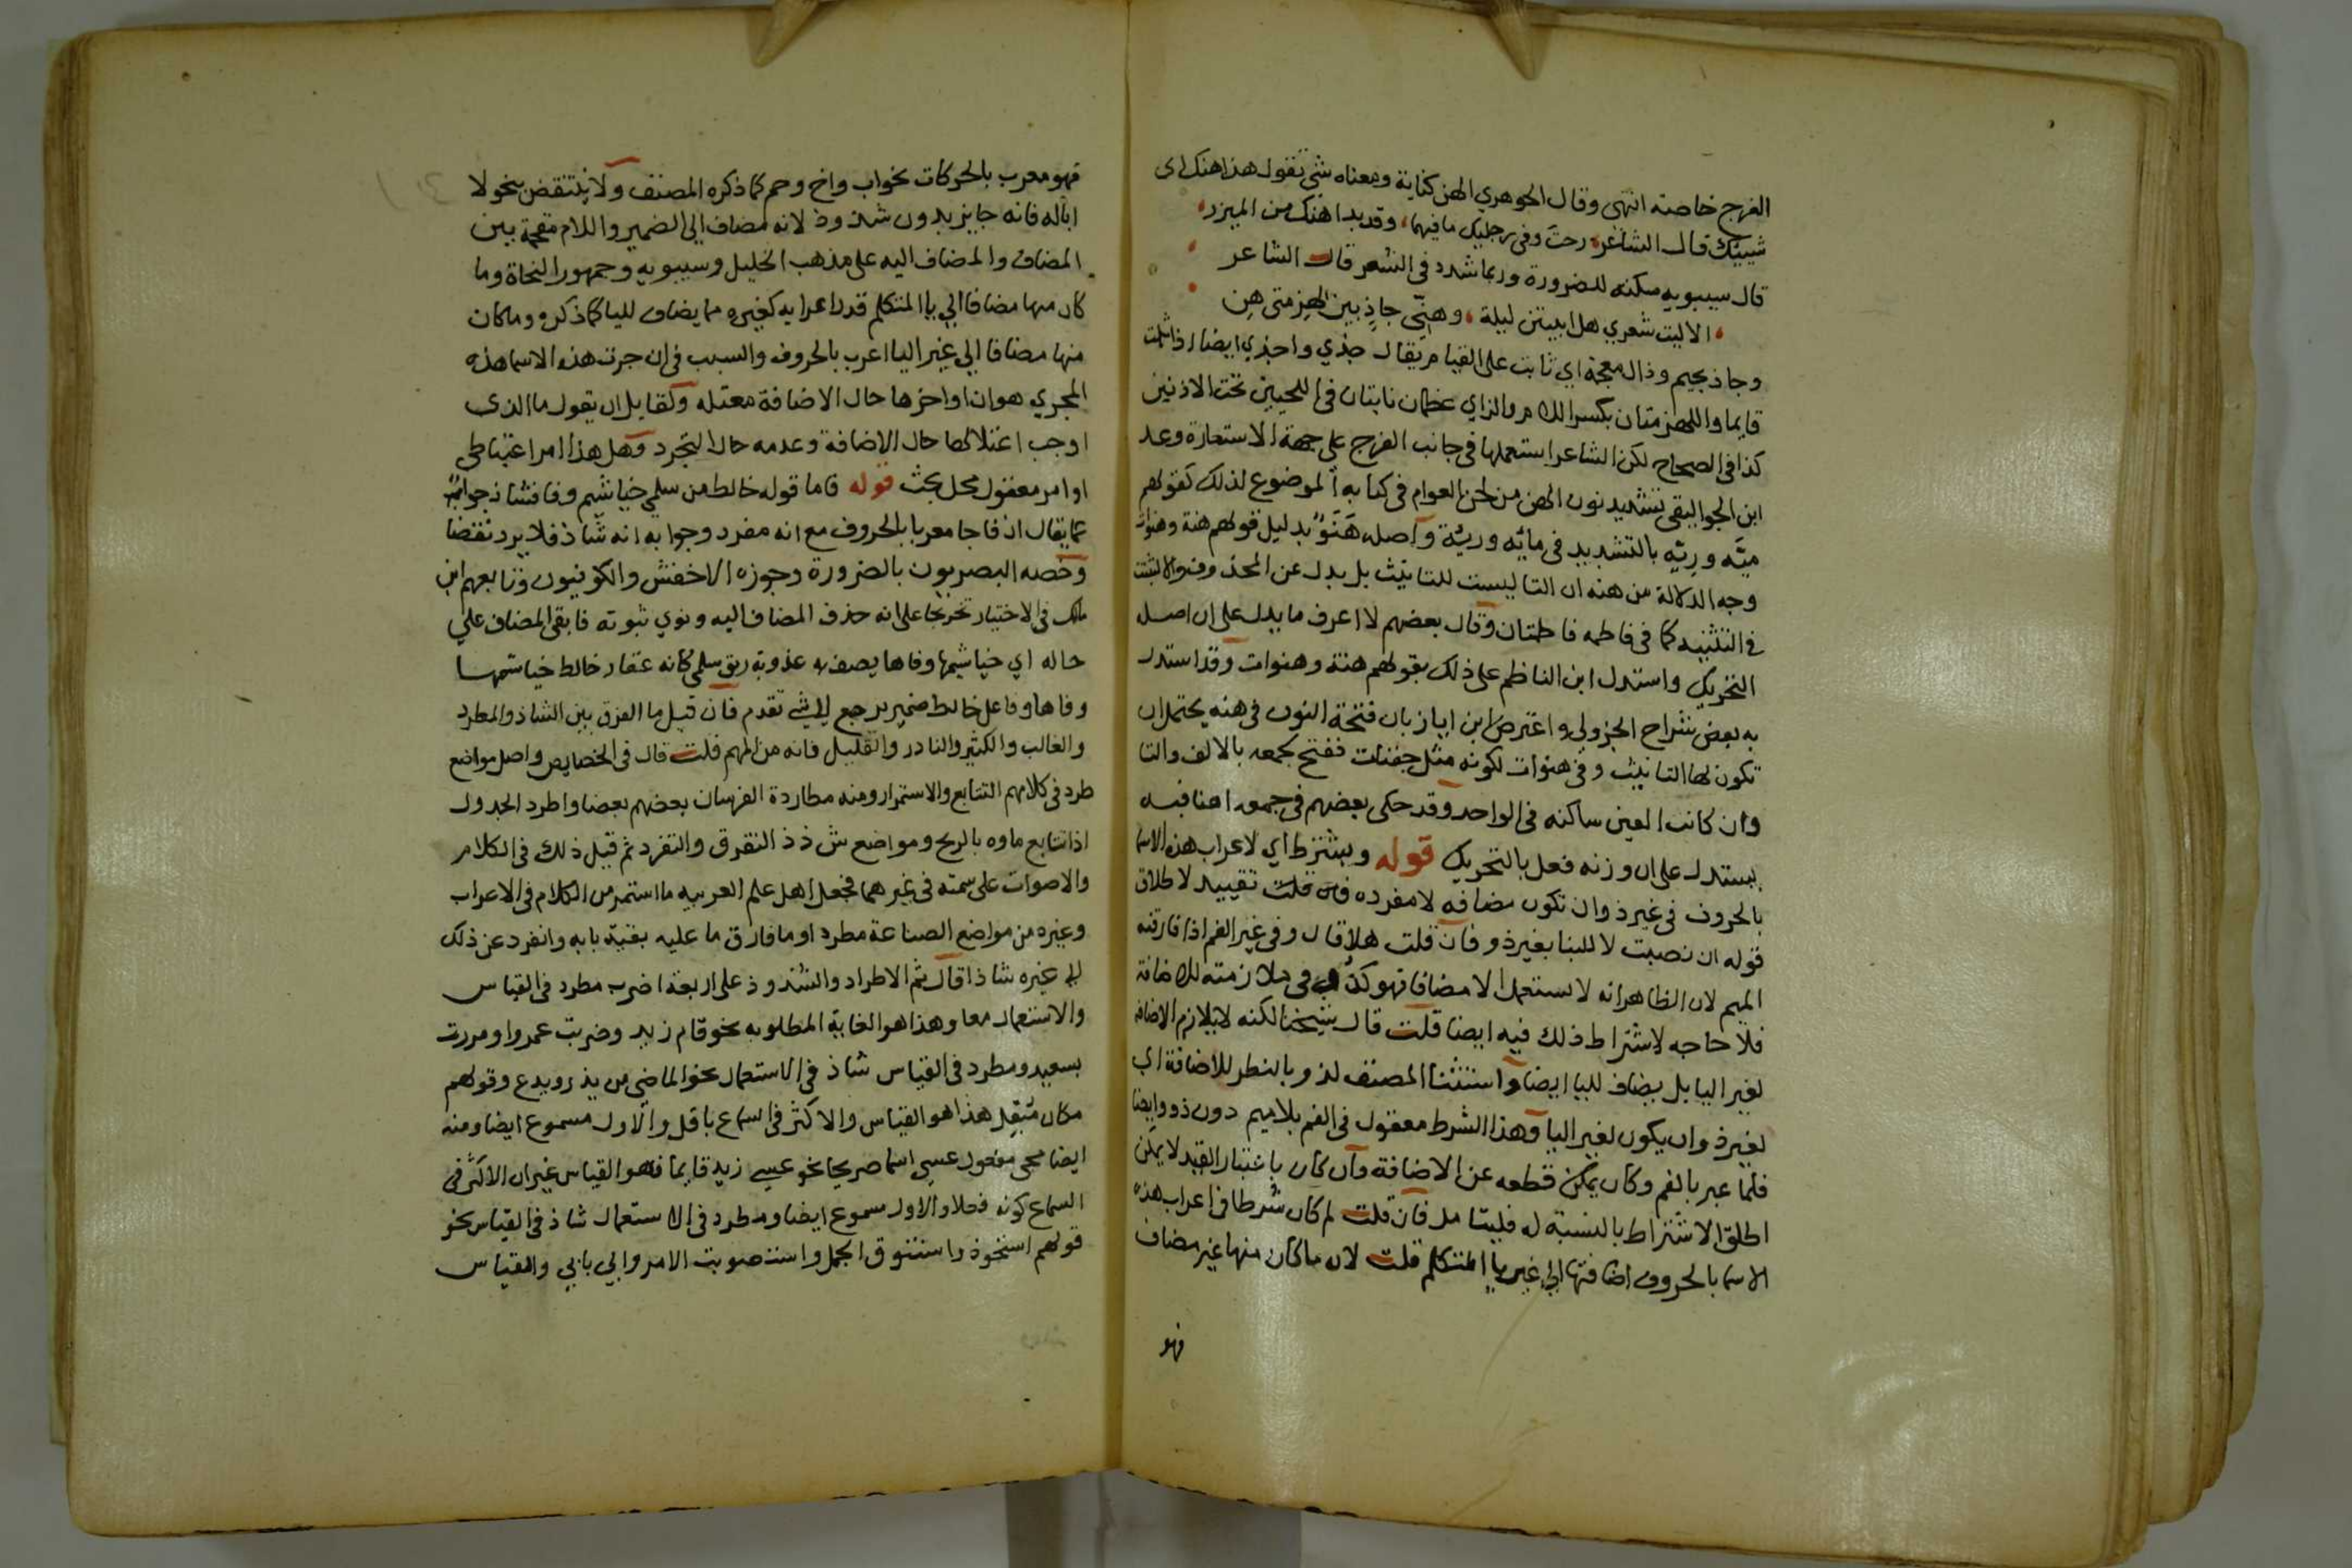 الفرج خاصة انتهى وقال الجوهري الهن كناية ومعناه شي تقول هذا هنك اى
شييك قال الشاعر رحت وفى رجليك ما فيهما وقد بدا هنك من الميزر
قال سيبويه سكنه للضرورة وربما شدد فى الشعر قال الشاعر
الاليت شعري هل ابيتن ليلة وهنّي جاذ بين لهزمتى هن
وجاذ بجيم وذال معجمة اي ثابت على القيام يقال جذي واجذي ايضا اذا ثبت
قايما واللهزمتان بكسر اللام والزاي عظمان ناتيان فى اللحيين تحت الاذنين
كذا فى الصحاح لكن الشاعر استعملها فى جانب الفرج على جهة الاستعارة وعد
ابن الجواليقى تشديد نون الهن من لحن العوام فى كتابه الموضوع لذلك كقولهم
ميّه وريّه بالتشديد فى مائه وريّة واصله هَنَوٌ بدليل قولهم هنة وهنوات
وجه الدلالة من هنه ان التا ليست للتانيث بل بدل عن المحذوف والا لثبتت
فى التثنيه كما فى فاطمه فاطمتان وقال بعضهم لا اعرف ما يدل على ان اصله
التحريك واستدل ابن الناظم على ذلك بقولهم هنة وهنوات وقد استدل
به بعض شراح الجزولى واعترض ابن اياز بان فتحة النون فى هنه يحتمل ان
تكون لها التانيث وفى هنوات لكونه مثل جفنات ففتح لجمعه بالالف والتا
وان كانت العين ساكنه فى الواحد وقد حكى بعضهم فى جمعه اهنا فبه
يستدل على ان وزنه فعل بالتحريك قوله ويشترط اي لاعراب هذه الاسما
بالحروف فى غير ذو ان تكون مضافه لا مفرده فان قلت تقييد لاطلاق
قوله ان نصبت لا للبنا بغير ذو فان قلت هلا قال وفى غير الفم اذا فارقته
الميم لان الظاهر انه لا يستعمل الا مضافا فهو كذو فى ملازمته للاضافة
فلا حاجه لاشتراط ذلك فيه ايضا قلت قال شيخنا لكنه لا يلازم الاضافه
لغير اليا بل يضاف لليا ايضا واستثنا المصنف لذو بالنظر للاضافة اى
لغير ذو ان يكون لغير اليا وهذا الشرط معقول فى الفم بلا ميم دون ذو وايضا
فلما عبر بالفم وكان يمكن قطعه عن الاضافة وان كان باعتبار القيد لا يمكن
اطلق الاشتراط بالنسبة له فليتامل فان قلت لم كان شرطا فى اعراب هذه
الاسما بالحروف اضافتها الى غير يا المتكلم قلت لان ما كان منها غير مضاف
فهو
فهو معرب بالحركات نحو اب واخ وحم كما ذكره المصنف ولا ينتقض بنحو لا
ابا له فانه جايز بدون شذوذ لانه مضاف الى الضمير واللام مقحمة بين
المضاف والمضاف اليه على مذهب الخليل وسيبويه وجمهور النحاة وما
كان منها مضافا الى يا المتكلم قدر اعرابه كغيره مما يضاف لليا كما ذكره وما كان
منها مضافا الى غير اليا اعرب بالحروف والسبب فى ان جرت هذه الاسما هذه
المجرى هو ان اواخرها حال الاضافة معتله ولقايل ان يقول ما الذى
اوجب اعتلالها حال الاضافة وعدمه حال التجرد وهل هذا امر اعتباطى
او امر معقول محل بحث قوله فاما قوله خالط من سلمي خياشيم وفا فشاذ جواب
عما يقال ان فا جا معربا بالحروف مع انه مفرد وجوابه انه شاذ فلا يرد نقضا
وخصه البصريون بالضرورة وجوزه الاخفش والكوفيون وتابعهم ابن
مالك فى الاختيار تخريجا على انه حذف المضاف اليه ونوي ثبوته فابقى المضاف علي
حاله اي خياشيمها وفاها يصف به عذوبة ريق سلمى كانه عقار خالط خياشمها
وفاها وفاعل خالط ضمير يرجع الى شي تقدم فان قيل ما الفرق بين الشاذ والمطرد
والغالب والكثير والنادر والقليل فانه من المهم قلت قال فى الخصايص واصل مواضع
طرد فى كلامهم التتابع والاستمرار ومنه مطاردة الفرسان بعضهم بعضا واطرد الجدول
اذا تتابع ماوه بالريح ومواضع ش ذ ذ التفرق والتفرد ثم قيل ذلك فى الكلام
والاصوات على سمته فى غيرهما فجعل اهل علم العربيه ما استمر من الكلام فى الاعراب
وغيره من مواضع الصناعة مطردا وما فارق ما عليه بقية بابه وانفرد عن ذلك
الى غيره شاذا قال ثم الاطراد والشذوذ على اربعة اضرب مطرد فى القياس
والاستعمال معا وهذا هو الغاية المطلوبه نحو قام زيد وضربت عمروا ومررت
بسعيد ومطرد فى القياس شاذ فى الاستعمال نحو الماضى من يذر ويدع وقولهم
مكان مُبقِل هذا هو القياس والاكثر فى السماع باقل والاول مسموع ايضا ومنه
ايضا مجى مفعول عسى اسما صريحا نحو عسى زيد قايما فهو القياس غير ان الاكثر فى
السماع كونه فعلا والاول مسموع ايضا ومطرد فى الاستعمال شاذ فى القياس نحو
قولهم استحوذ واستنوق الجمل واستصوبت الامر وابي يابي والقياس